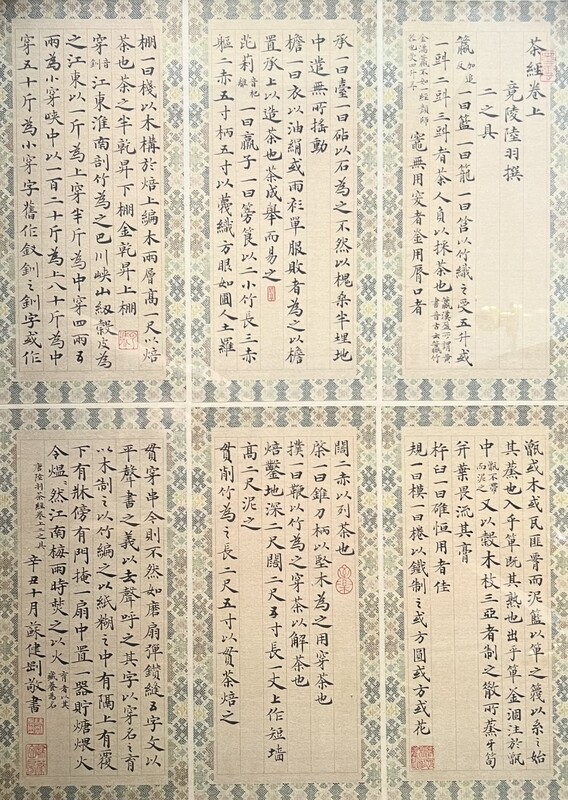 茶經卷上
竟陵陸羽撰
二之具
籝加追反一曰籃一曰籠一曰筥以竹織之受五升或
一㪷二㪷三㪷者茶人負以採茶也
金滿籝不如一經顏師
竈無用突者釜用脣口者
承一曰臺一曰砧以石為之不然以槐桑半埋地
中遣無所搖動
檐一曰衣以油絹或雨衫單服敗者為之以檐
置承上以造茶也茶成舉而易之
芘莉音杷離一曰羸子一曰篣筤以二小竹長三赤
軀二赤五寸柄五寸以篾織方眼如圃人土羅
棚一曰棧以木構於焙上編木兩層高一尺以焙
茶也茶之半乾昇下棚全乾昇上棚
穿音釧江東淮南剖竹為之巴川峽山紉穀皮為
之江東以一斤為上穿半斤為中穿四兩五
兩為小穿峽中以一百二十斤為上八十斤為中
穿五十斤為小穿字舊作釵釧之釧字或作
甑或木或瓦匪脣而泥籃以箄之篾以系之始
其蒸也入乎箄既其熟也出乎箄釜涸注於甑
中甑不帶而泥之又以穀木枝三亞者制之散所蒸牙筍
并葉畏流其膏
杵臼一曰碓恒用者佳
規一曰模一曰棬以鐵制之或方圓或方或花
闊二赤以列茶也
棨一曰錐刀柄以堅木為之用穿茶也
撲一曰鞭以竹為之穿茶以解茶也
焙鑿地深二尺闊二尺五寸長一丈上作短墻
高二尺泥之
貫削竹為之長二尺五寸以貫茶焙之
貫穿串今則不然如磨扇彈鑽縫五字文以
平聲書之義以去聲呼之其字以穿名之育
以木制之以竹編之以紙糊之中有隔上有覆
下有牀傍有門掩一扇中置一器貯煻煨火
令熅熅然江南梅雨時焚之以火育者以其藏養為名
唐陸羽茶經卷上二之具
辛丑十月蘇健劍敬書